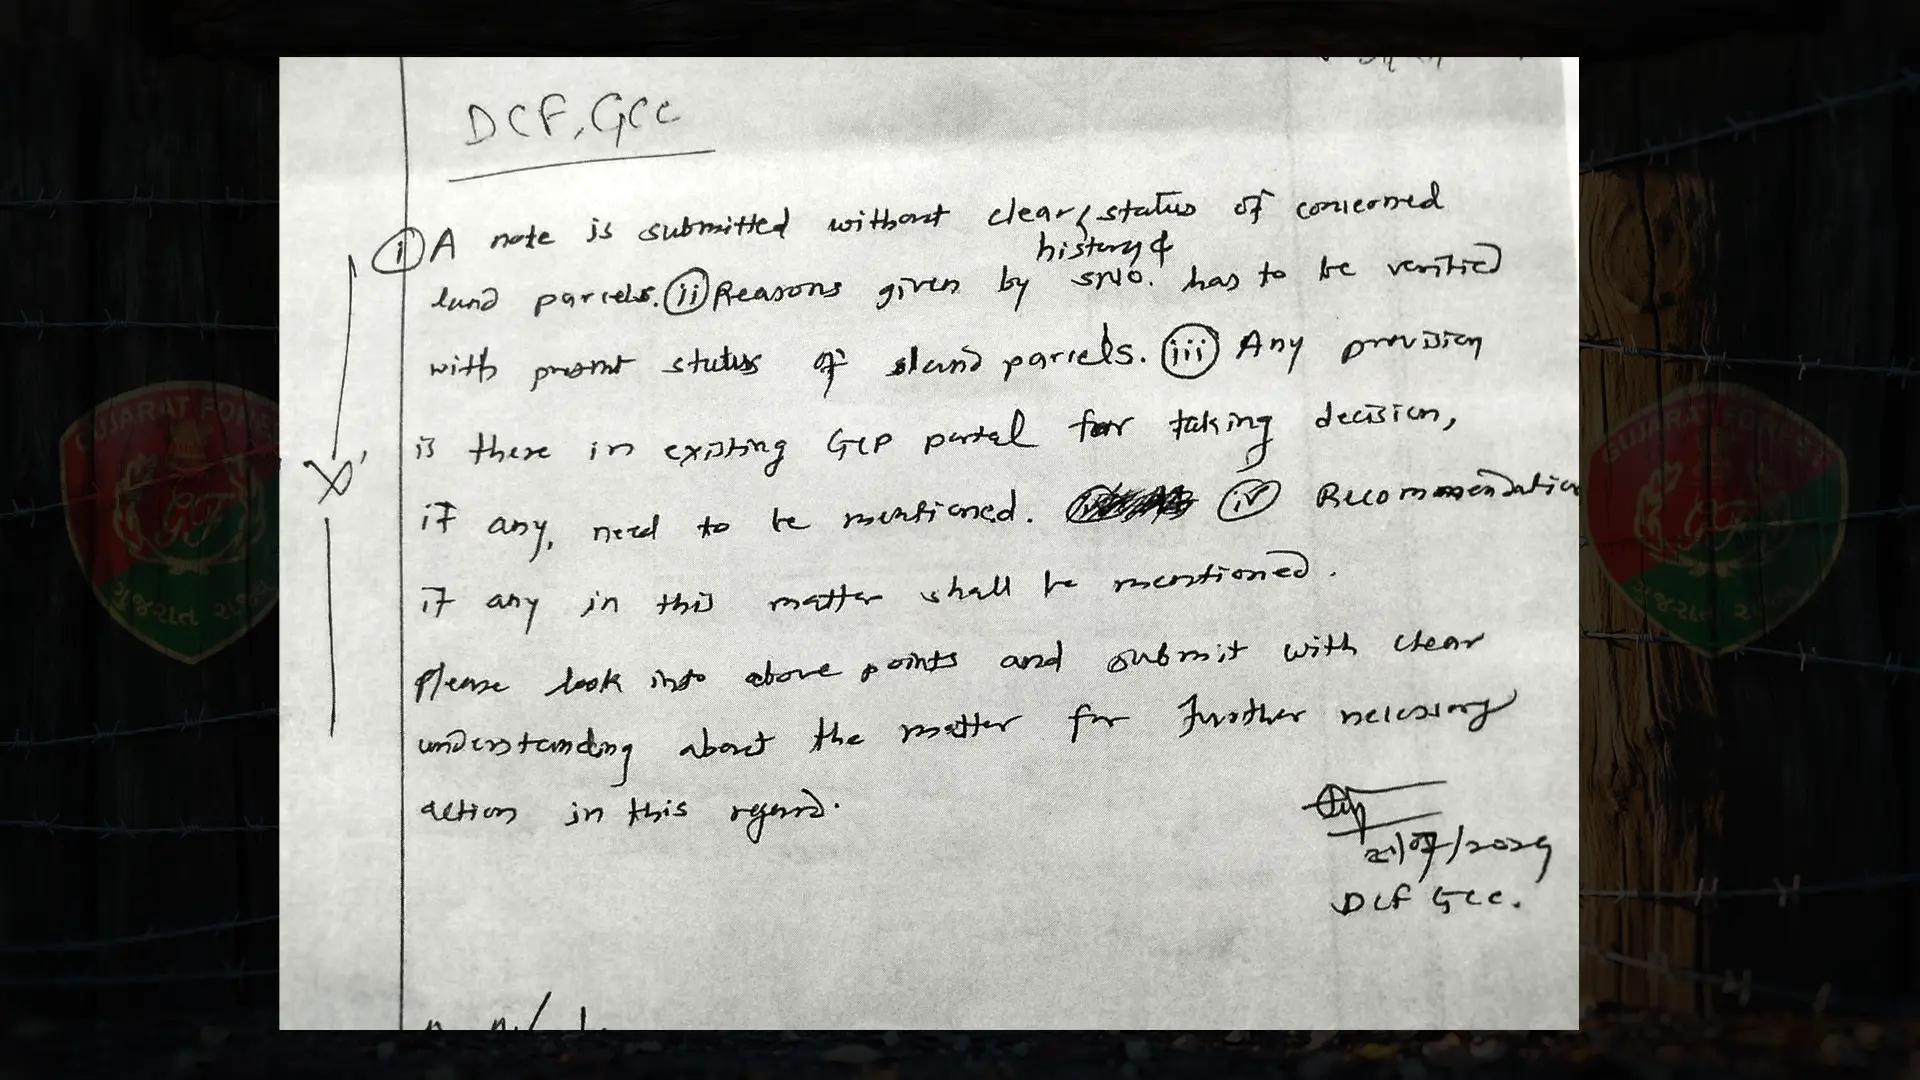 DCF, GCC
(i) A note is submitted without clear history & status of concerned
land parcels. (ii) Reasons given by SNO. has to be verified
with present status of land parcels. (iii) Any provision
is there in existing GCP portal for taking decision,
if any, need to be mentioned. (iv) Recommendation
if any in this matter shall be mentioned.
Please look into above points and submit with clear
understanding about the matter for further necessary
action in this regard.
'X'
21/07/2024
DCF GCC.
GUJARAT FOREST
GF
ગુજરાત રાજ્ય
GUJARAT FOREST
GF
ગુજરાત રાજ્ય